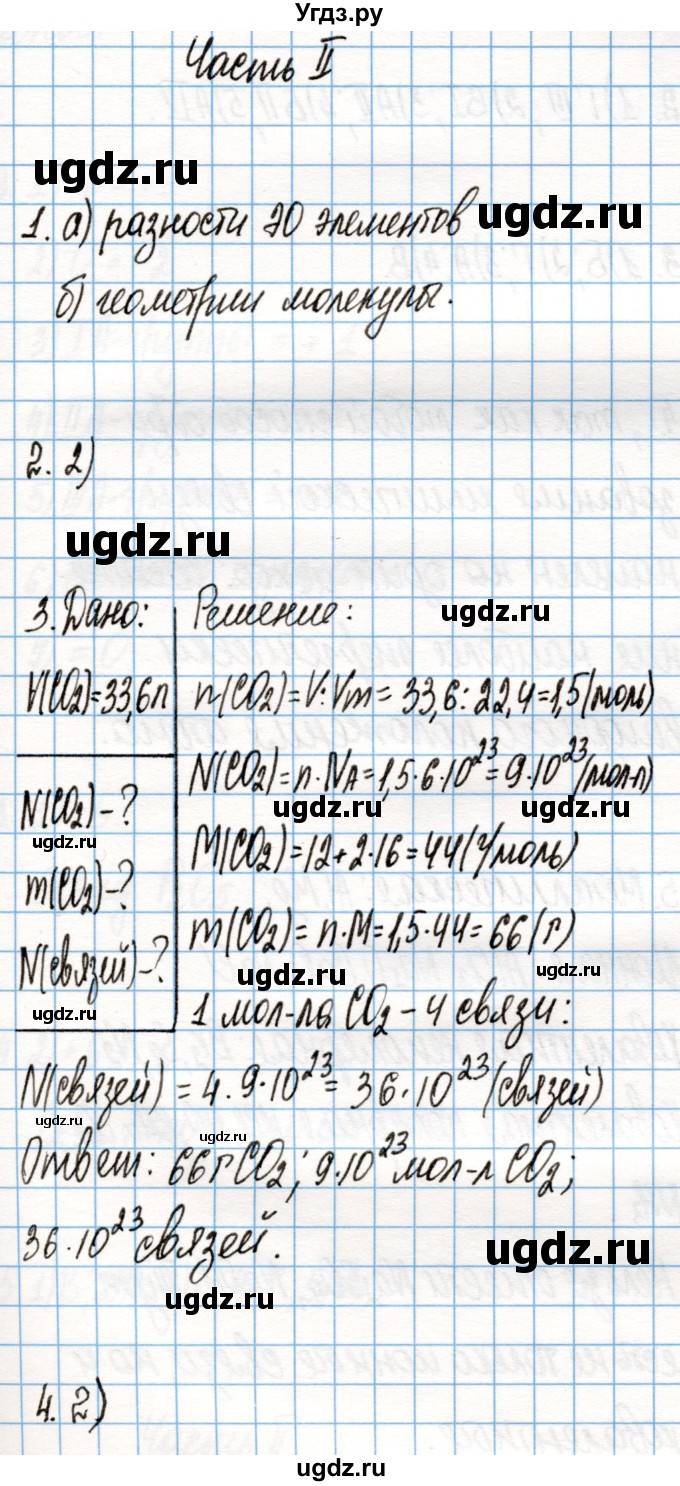 Угдз.ру
Часть II
ugdz.ru
1. а) разности ЭО элементов ugdz.ru
б) геометрии молекулы.
2. 2)
ugdz.ru
3. Дано: Решение: ugdz.ru
V(CO₂)=33,6л n(CO₂)=V:Vm=33,6:22,4=1,5(моль)
N(CO₂)=n·NA=1,5·6·10²³=9·10²³(мол-л)
N(CO₂)-? ugdz.ru ugdz.ru
ugdz.ru M(CO₂)=12+2·16=44(г/моль)
m(CO₂)-?
ugdz.ru m(CO₂)=n·M=1,5·44=66(г)
N(связей)-? ugdz.ru ugdz.ru
ugdz.ru 1 мол-ла CO₂-4 связи:
N(связей)=4·9·10²³=36·10²³(связей)
ugdz.ru ugdz.ru
Ответ: 66г CO₂; 9·10²³ мол-л CO₂;
36·10²³ связей. ugdz.ru
ugdz.ru
4. 2)
ugdz.ru